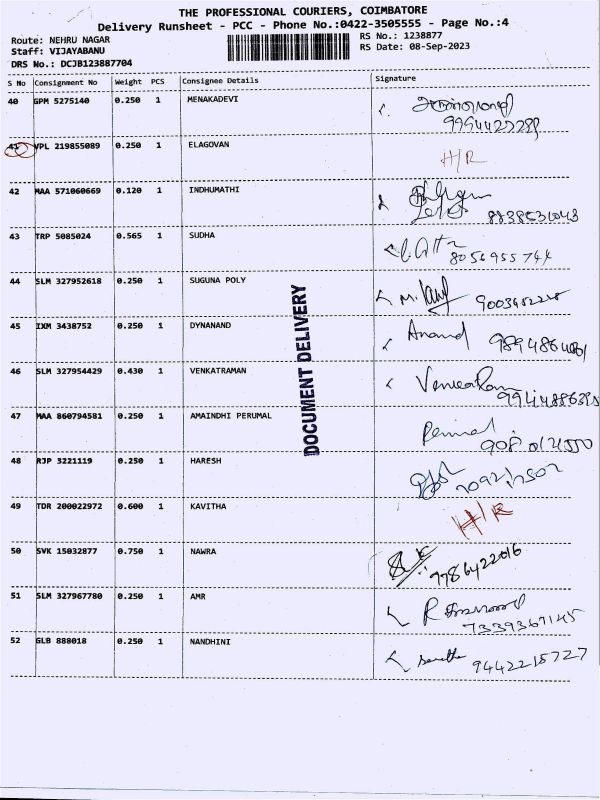 THE PROFESSIONAL COURIERS, COIMBATORE
Delivery Runsheet - PCC - Phone No.:0422-3505555 - Page No.:4
Route: NEHRU NAGAR
Staff: VIJAYABANU
DRS No.: DCJB123887704
RS No.: 1238877
RS Date: 08-Sep-2023
S No Consignment No Weight PCS Consignee Details Signature
40 GPM 5275140 0.250 1 MENAKADEVI
41 VPL 219855089 0.250 1 ELAGOVAN H/R
42 MAA 571060669 0.120 1 INDHUMATHI
43 TRP 5085024 0.565 1 SUDHA
8056955744
44 SLM 327952618 0.250 1 SUGUNA POLY
45 IXM 3438752 0.250 1 DYNANAND Anand
46 SLM 327954429 0.430 1 VENKATRAMAN
47 MAA 860794581 0.250 1 AMAINDHI PERUMAL
48 RJP 3221119 0.250 1 HARESH
49 TDR 200022972 0.600 1 KAVITHA H/R
50 SVK 15032877 0.750 1 NAWRA
9786422016
51 SLM 327967780 0.250 1 AMR
7339367145
52 GLB 888018 0.250 1 NANDHINI
9442215727
DOCUMENT DELIVERY